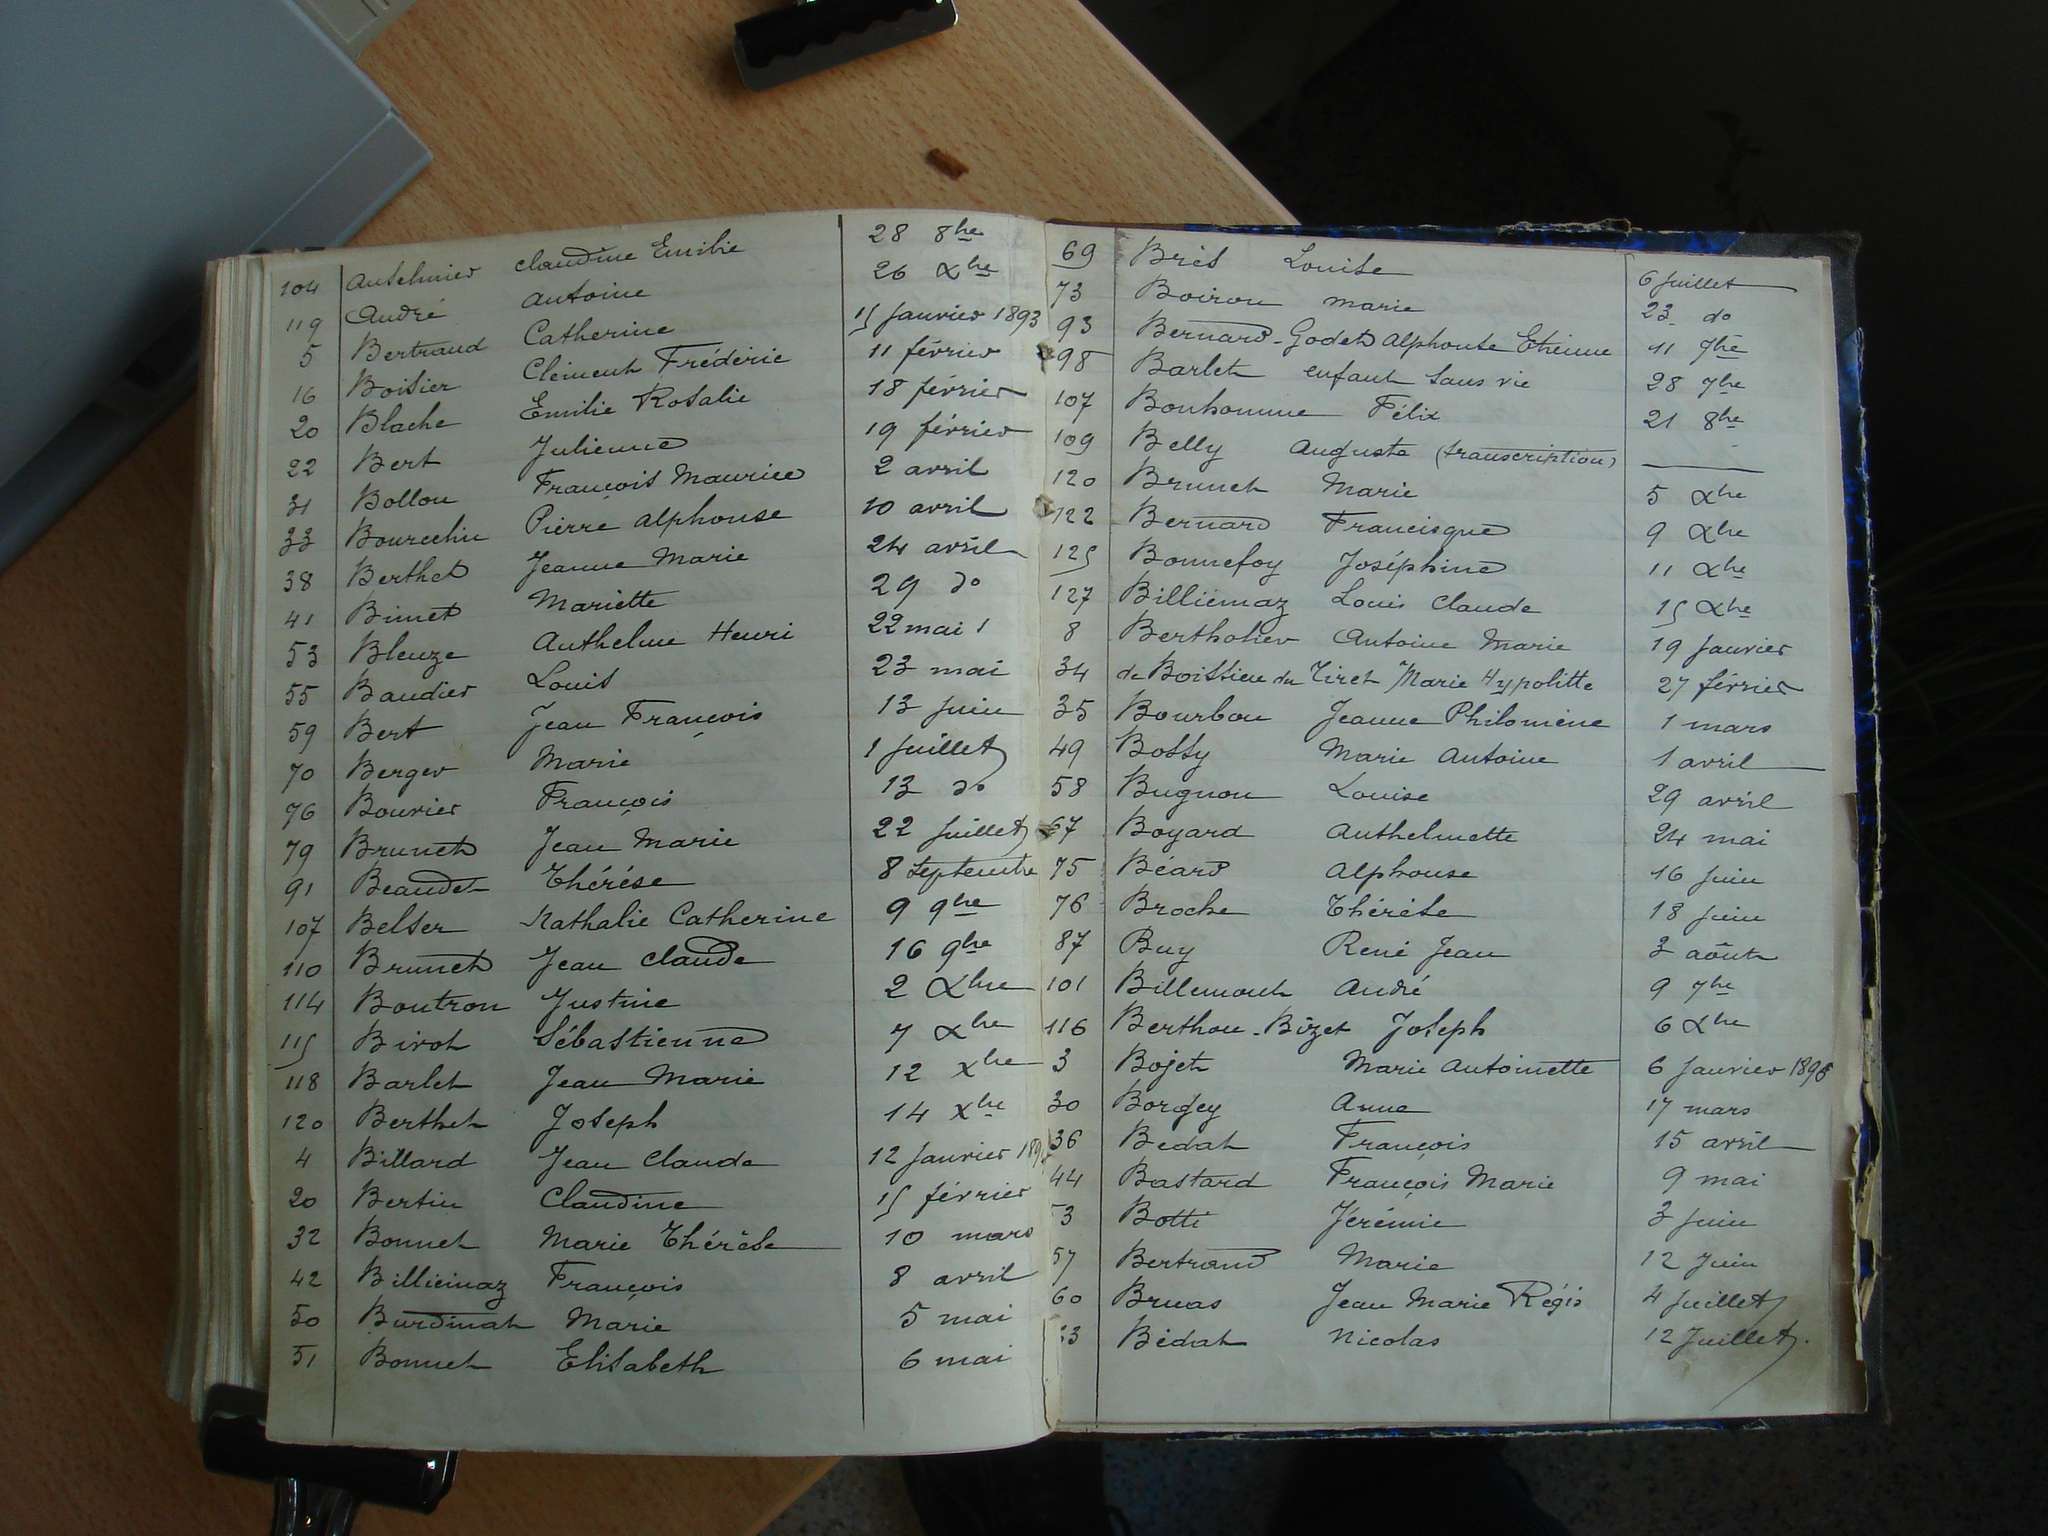 104 Anthelmier Claudine Emilie 28 8bre
119 André Antoine 26 Xbre
5 Bertrand Catherine 15 Janvier 1893
16 Boisier Clément Frédéric 11 février
20 Blache Emilie Rosalie 18 février
22 Bert Julienne 19 février
31 Bollon François Maurice 2 avril
33 Bourechin Pierre Alphonse 10 avril
38 Berthet Jeanne Marie 24 avril
41 Binet Mariette 29 do
53 Bleuze Anthelme Henri 22 mai
55 Baudier Louis 23 mai
59 Bert Jean François 13 juin
70 Berger Marie 1 Juillet
76 Bouvier François 13 do
79 Brunet Jean Marie 22 Juillet
91 Beaudet Thérèse 8 Septembre
107 Belser Nathalie Catherine 9 9bre
110 Brunet Jean Claude 16 9bre
114 Boutron Justine 2 Xbre
115 Birot Sébastienne 7 Xbre
118 Barlet Jean Marie 12 Xbre
120 Berthet Joseph 14 Xbre
4 Billard Jean Claude 12 Janvier
20 Bertin Claudine 15 février
32 Bonnet Marie Thérèse 10 mars
42 Billiémaz François 8 avril
50 Burdinat Marie 5 mai
51 Bonnet Elisabeth 6 mai
69 Brès Louise 6 Juillet
73 Boiron Marie 23 do
93 Bernard-Godet Alphonse Etienne 11 7bre
98 Barlet enfant sans vie 28 7bre
107 Bonhomme Félix 21 8bre
109 Belly Auguste (transcription)
120 Brunet Marie 5 Xbre
122 Bernard Francisque 9 Xbre
125 Bonnefoy Joséphine 11 Xbre
127 Billiémaz Louis Claude 15 Xbre
8 Bertholier Antoine Marie 19 Janvier
34 de Boissieu du Tiret Marie Hypolitte 27 février
35 Bourbon Jeanne Philomène 1 mars
49 Bossy Marie Antoine 1 avril
58 Bugnon Louise 29 avril
67 Boyard Anthelmette 24 mai
75 Béard Alphonse 16 juin
76 Broche Thérèse 18 juin
87 Buy René Jean 3 août
101 Billemont André 9 7bre
116 Berthou-Bizet Joseph 6 Xbre
3 Bojet Marie Antoinette 6 Janvier
30 Borgey Anne 17 mars
36 Bedat François 15 avril
44 Bastard François Marie 9 mai
53 Botti Jérémie 3 juin
57 Bertrand Marie 12 Juin
60 Bruas Jean Marie Régis 4 Juillet
Bédat Nicolas 12 Juillet.